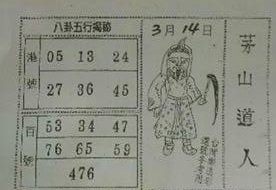 八卦五行揭秘
港號
05 13 24
27 36 45
百號
53 34 47
76 65 59
476
3月14日
茅山道人